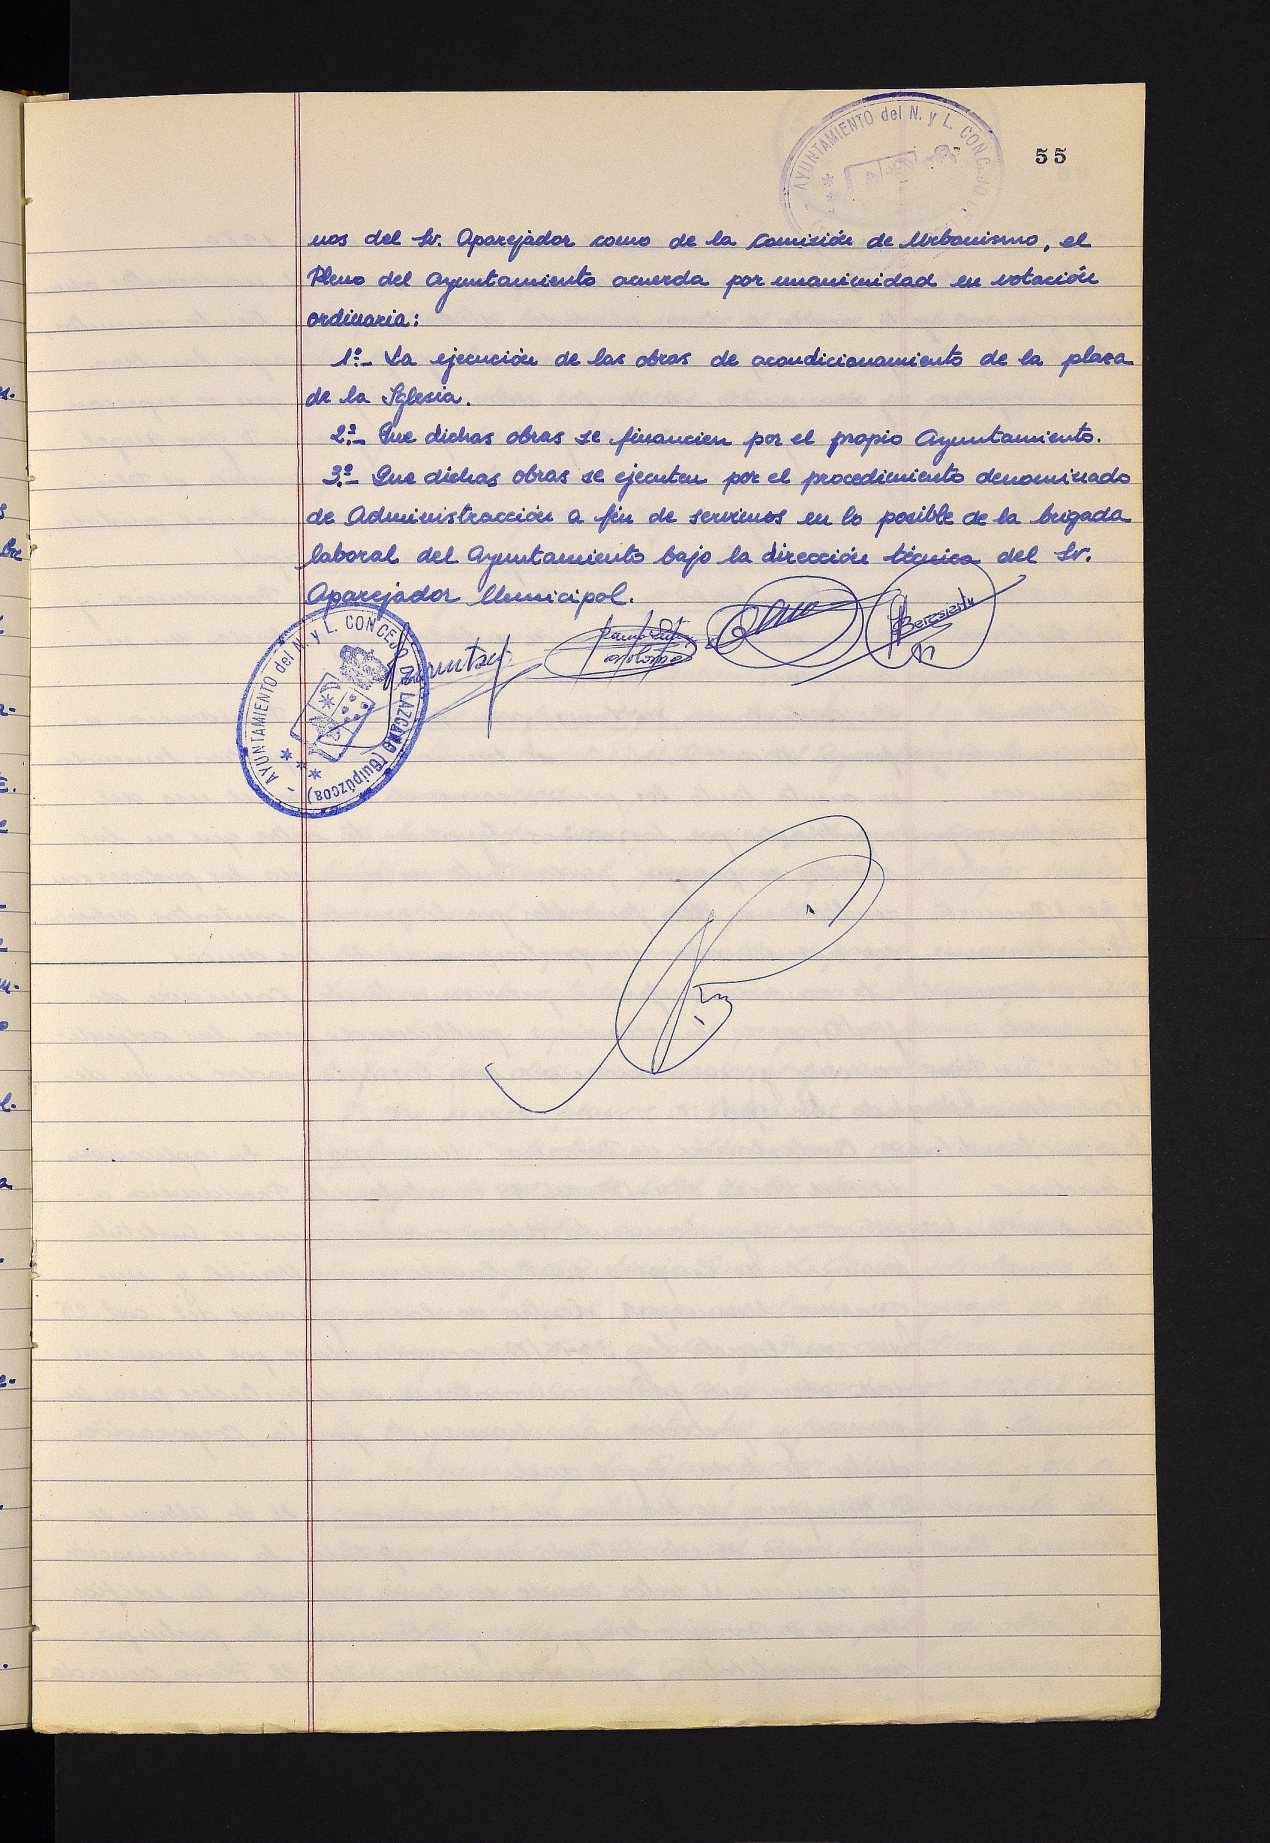 AYUNTAMIENTO del N. y L. CONCEJO
55
nos del Sr. Aparejador como de la Comisión de Urbanismo, el
Pleno del Ayuntamiento acuerda por unanimidad en votación
ordinaria:
1º.- La ejecución de las obras de acondicionamiento de la plaza
de la Iglesia.
2º.- Que dichas obras se financien por el propio Ayuntamiento.
3º.- Que dichas obras se ejecuten por el procedimiento denominado
de Administracción a fin de servirnos en lo posible de la brigada
laboral del Ayuntamiento bajo la dirección técnica del Sr.
Aparejador Municipal.
- AYUNTAMIENTO del N. y L. CONCEJO DE LAZCANO (Guipúzcoa)